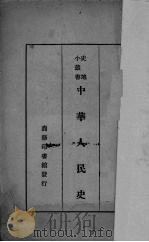 史地
小叢書
中華人民史
商務印書館發行